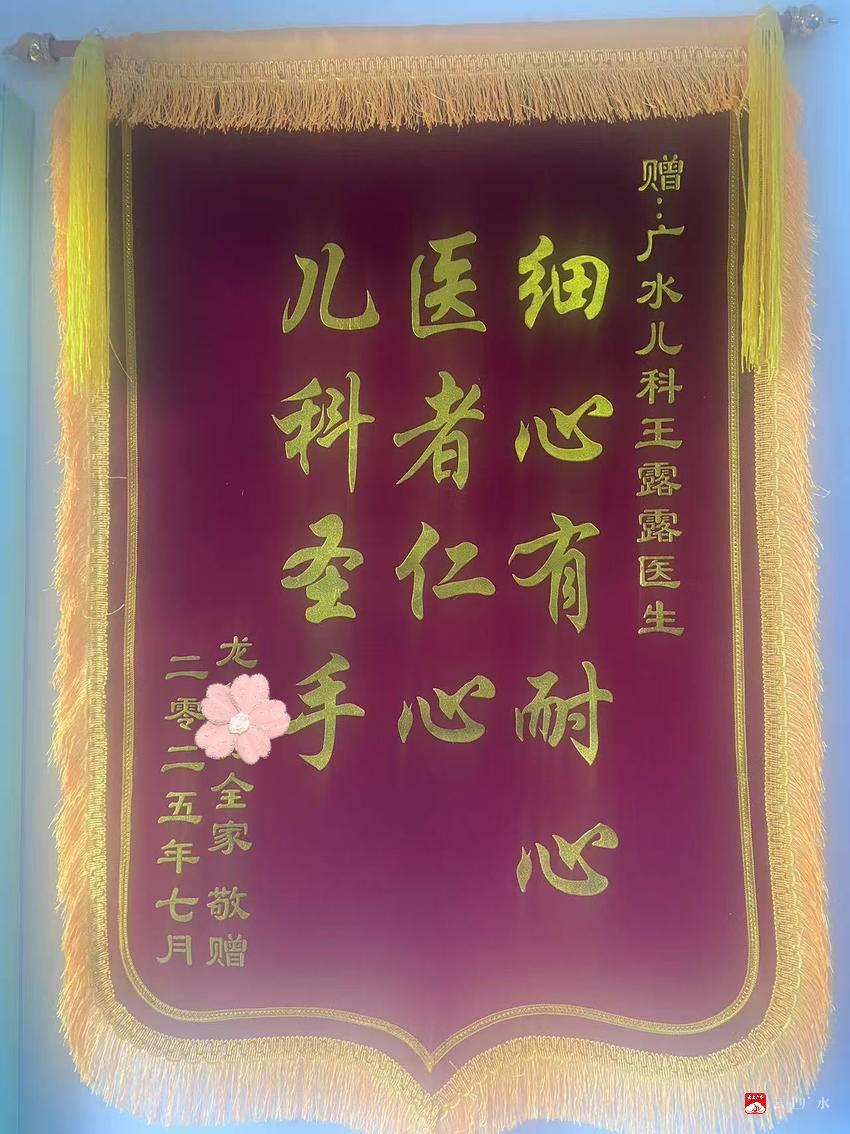 赠:广水儿科王露露医生
细心有耐心
医者仁心
儿科圣手
龙 全家 敬赠
二零二五年七月